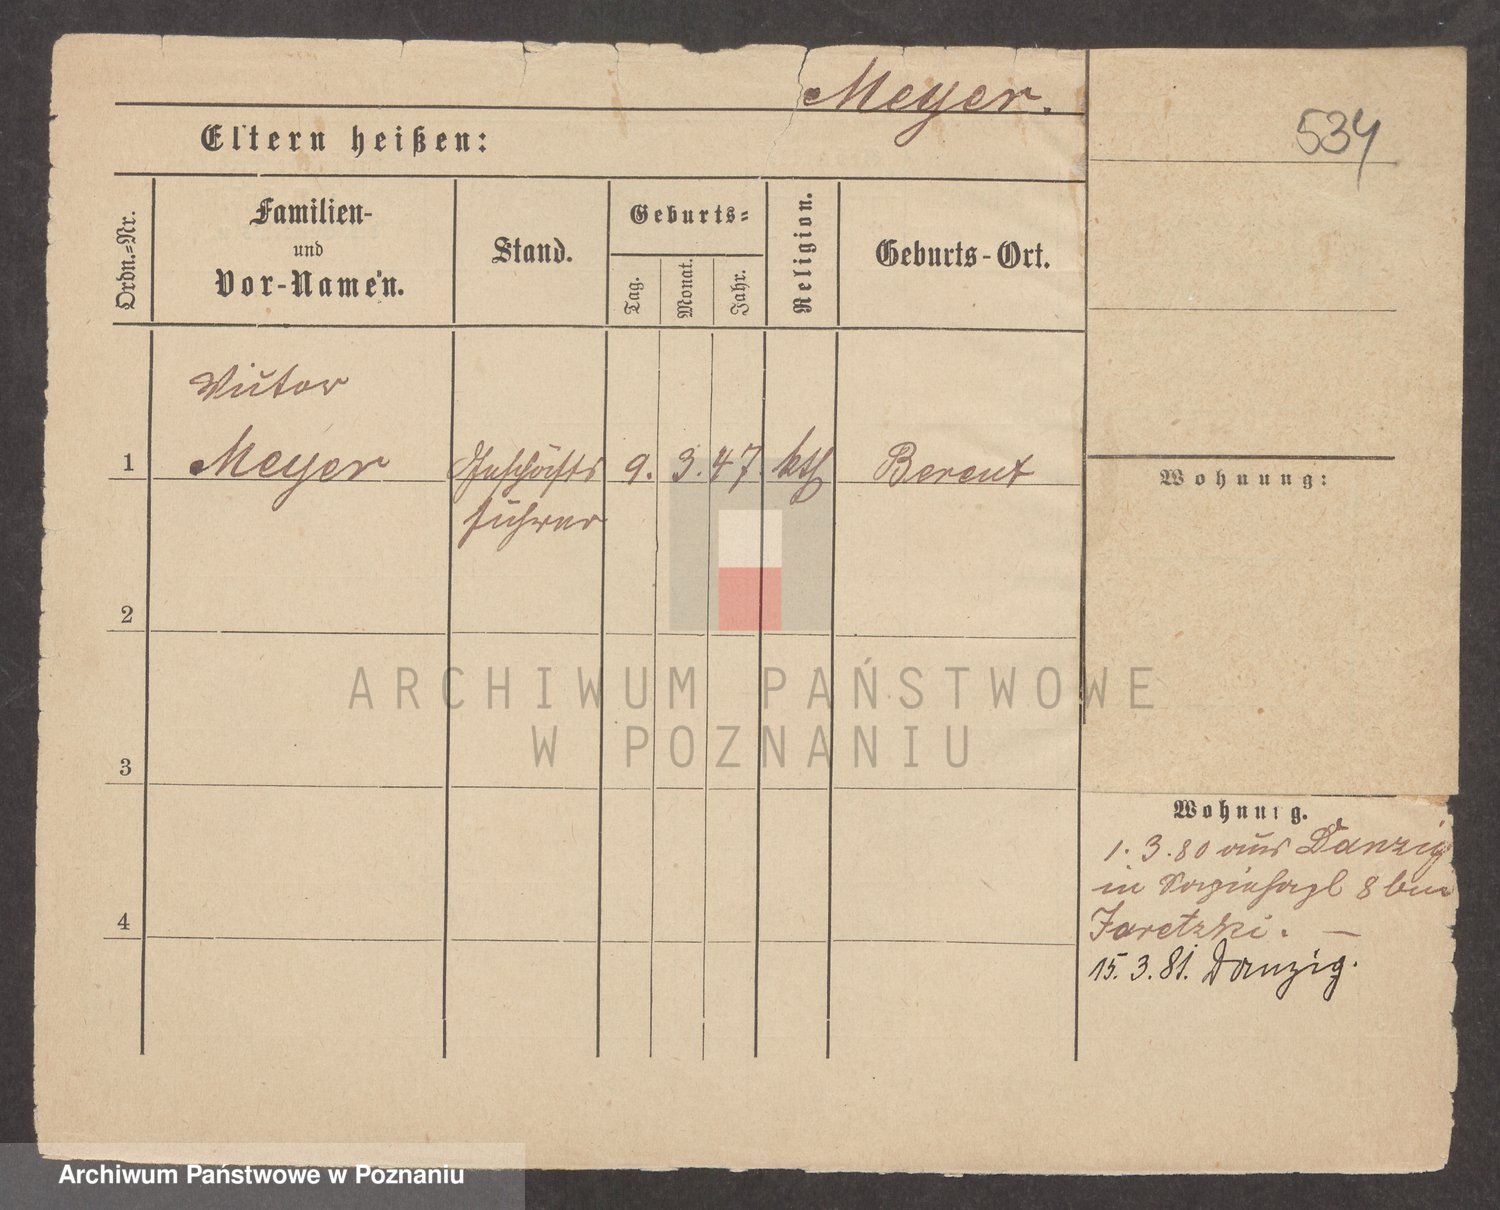 Meyer.
534
Eltern heißen:
Ordn.=Nr.
Familien-
und
Vor-Namen.
Stand.
Geburts=
Tag.
Monat.
Jahr.
Religion.
Geburts-Ort.
Victor
1 Meyer Geschäfts 9. 3. 47. kth Berent
führer
2
3
4
Wohnung:
Wohnung.
1. 3. 80 aus Danzig
in 8 bei
Jaretzki. —
15. 3. 81. Danzig.
ARCHIWUM PAŃSTWOWE
W POZNANIU
Archiwum Państwowe w Poznaniu